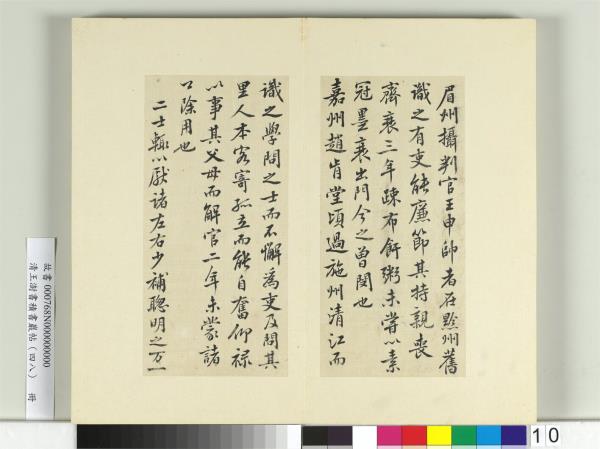 眉州攝判官王申帥者在黔州舊
識之有吏能廉節其持親喪
齊衰三年疎布飦粥未嘗以素
冠墨衰出門今之曾閔也
嘉州趙肯堂頃過施州清江而
識之學問之士而不懈為吏及問其
里人本客寄孤立而能自奮仰祿
以事其父母而解官二年未蒙諸
公除用也
二士輒以厭諸左右少補聰明之万一
故書 000768N000000000
清王澍書積書巖帖（四八） 冊
10